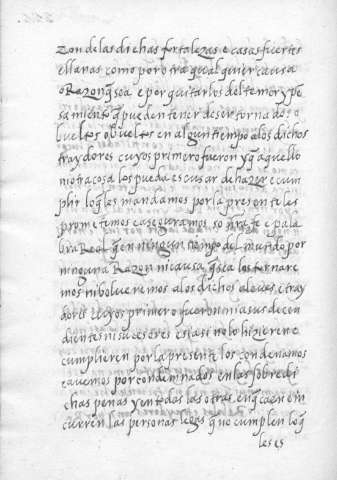 zon de las dichas fortalezas e casas fuertes
e llanas como por otra qual quier causa
o Razon q̃ sea e por quitarlos del temor y pe
samiento q̃ pueden tener de ser tornados o
bueltos o bueltos en algun tiempo a los dichos
traydores cuyos primero fueron y q̃ aquello
ni otra cosa los pueda escusar de hazer e cum
plir lo q̃ les mandamos por la presente les
prometemos e aseguramos so nr̃a fe e pala
bra Real q̃ en ningun tiempo del mundo por
ninguna Razon ni causa q̃ sea los tornare
mos ni bolveremos a los dichos aleves e tray
dores cuyos primero fueron ni a sus decen
dientes ni sucesores e si asi no lo hizieren e
cumplieren por la presente los condenamos
e avemos por condenados en las sobre di
chas penas y en todas las otras en q̃ caen e in
curren las personas legas q̃ no cumplen lo q̃
les es